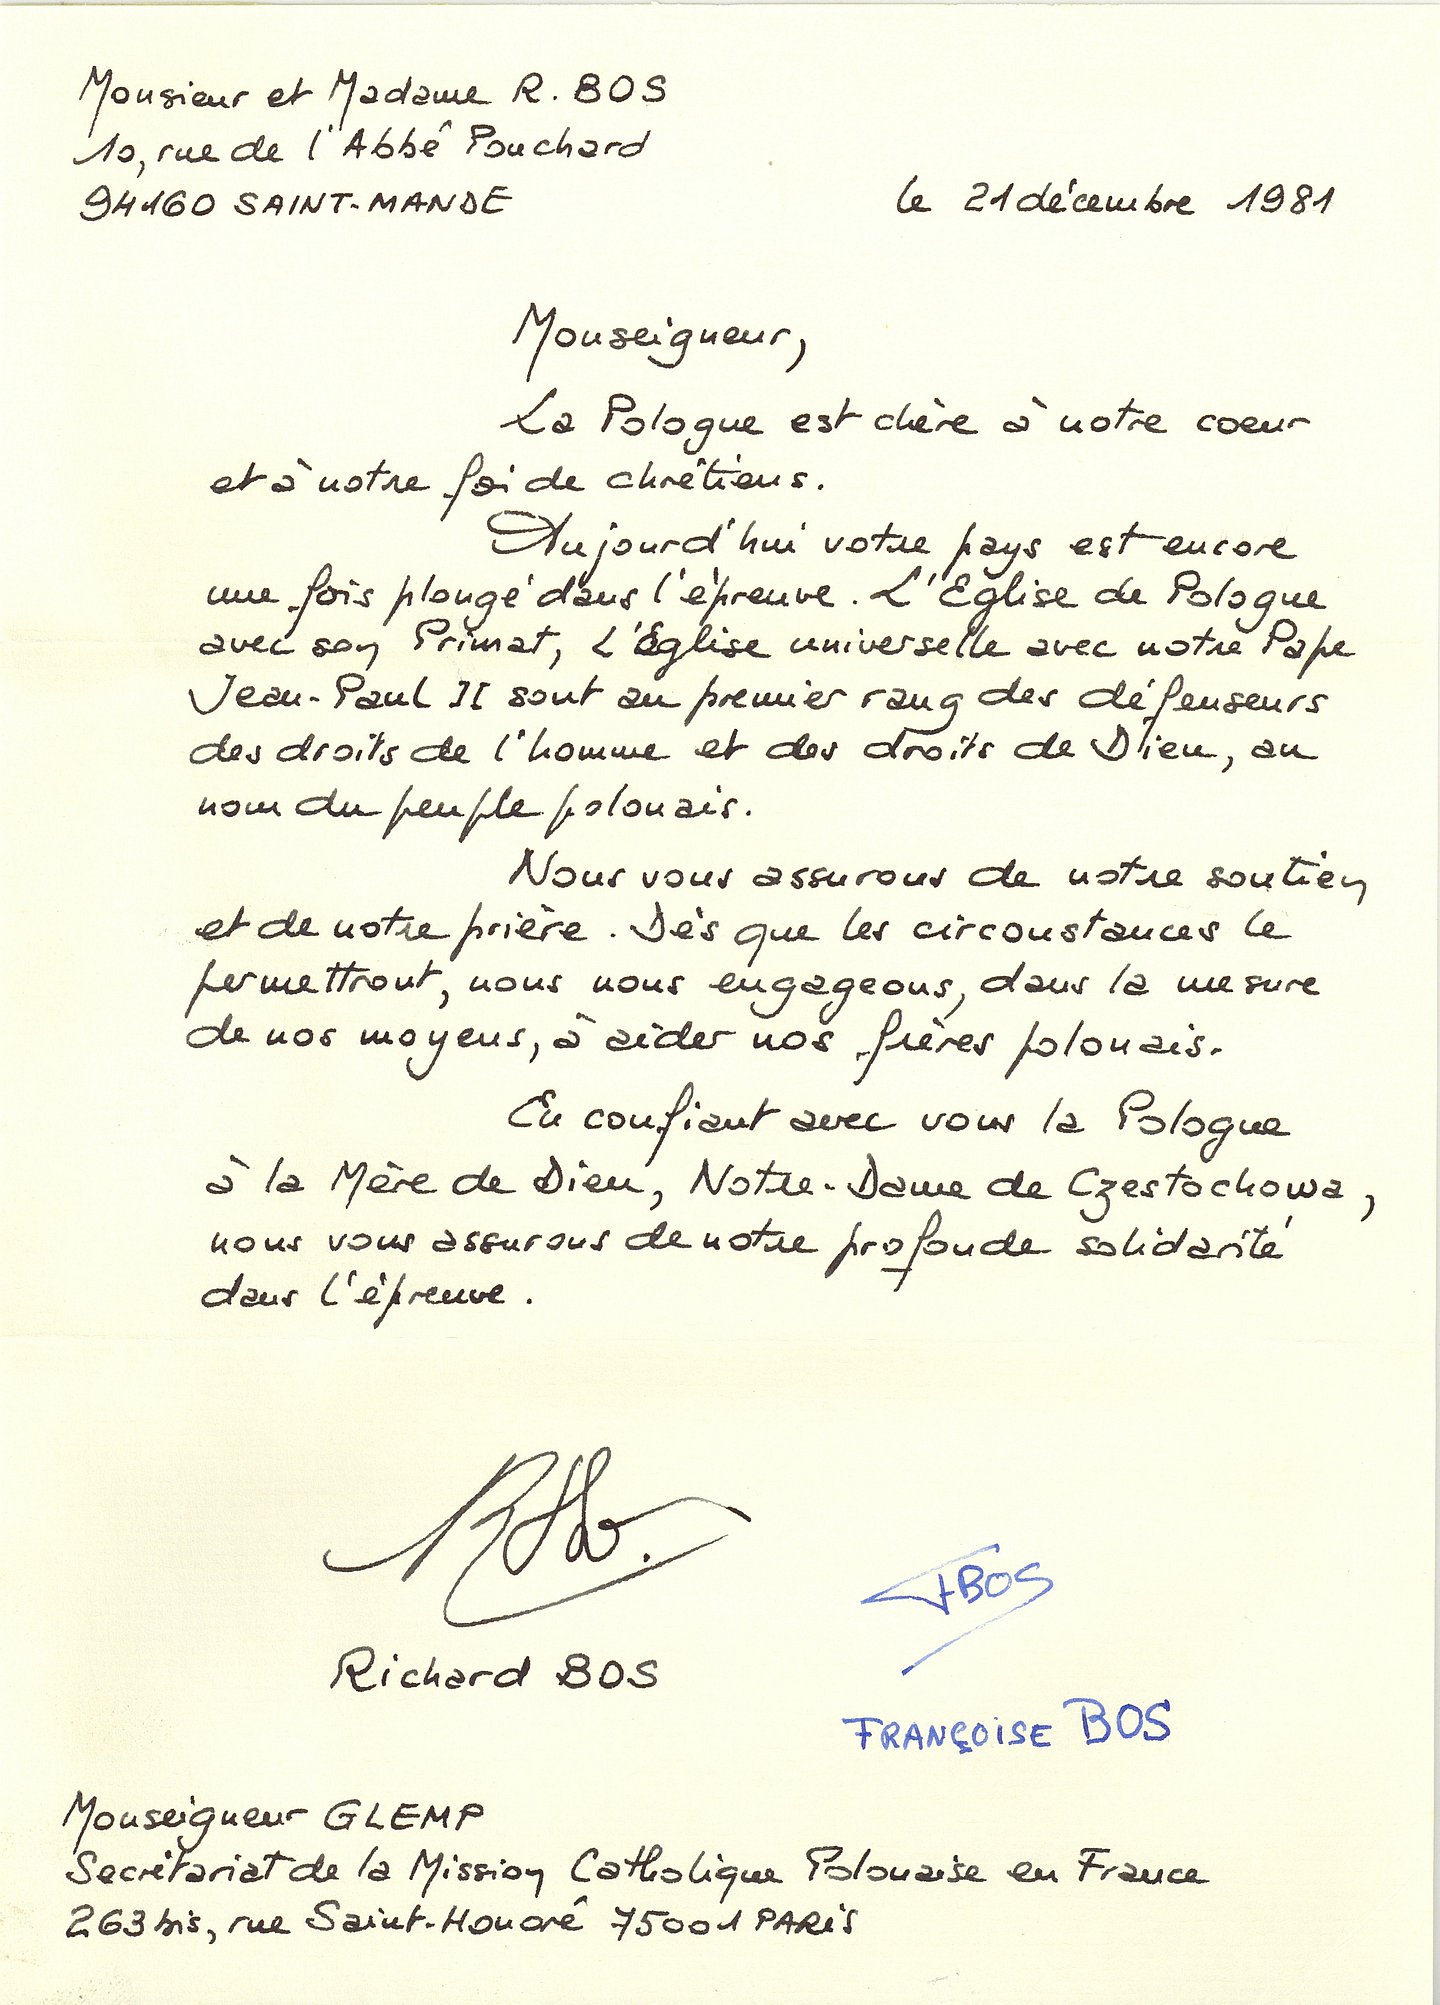 Monsieur et Madame R. BOS
10, rue de l'Abbé Pouchard
94160 SAINT-MANDE
le 21 décembre 1981
Monseigneur,
La Pologne est chère à notre coeur
et à notre foi de chrétiens.
Aujourd'hui votre pays est encore
une fois plongé dans l'épreuve. L'Eglise de Pologne
avec son Primat, L'Eglise universelle avec notre Pape
Jean-Paul II sont au premier rang des défenseurs
des droits de l'homme et des droits de Dieu, au
nom du peuple polonais.
Nous vous assurons de notre soutien
et de notre prière. Dès que les circonstances le
permettront, nous nous engageons, dans la mesure
de nos moyens, à aider nos frères polonais.
En confiant avec vous la Pologne
à la Mère de Dieu, Notre-Dame de Czestochowa,
nous vous assurons de notre profonde solidarité
dans l'épreuve.
FBOS
Richard BOS
FRANÇOISE BOS
Monseigneur GLEMP
Secrétariat de la Mission Catholique Polonaise en France
263 bis, rue Saint-Honoré 75001 PARIS